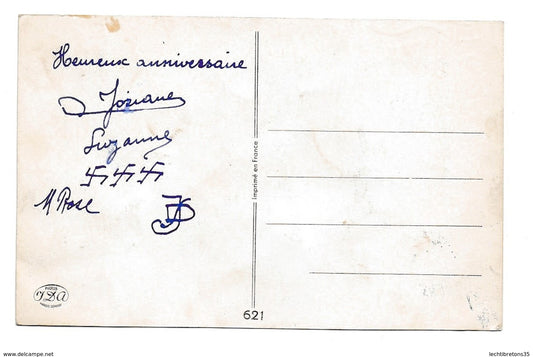 Heureux anniversaire
Josiane
Suzanne
M Rose
Imprimé en France
PARIS
JDA
621
www.delcampe.net
lechtibretons35